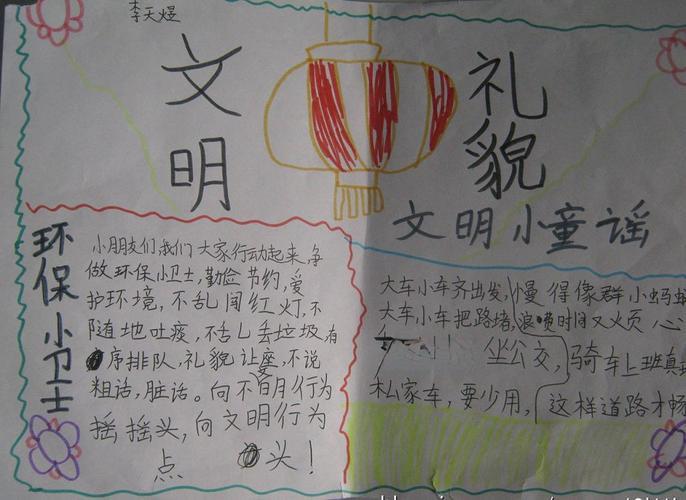 李天煜
文明
礼貌
文明小童谣
环保小卫士
小朋友们我们大家行动起来,争
做环保小卫士,勤俭节约,爱
护环境,不乱闯红灯,不
随地吐痰,不乱丢垃圾,有
序排队,礼貌让座,不说
粗话,脏话。向不文明行为
摇摇头,向文明行为
点头!
大车小车齐出发,慢得像群小蚂
大车小车把路堵,浪费时间又烦心
坐公交,骑车上班真
私家车,要少用,这样道路才畅